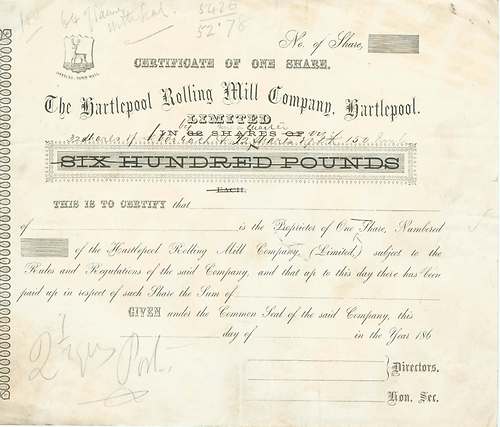 5426
52.78
No. of Share,
CERTIFICATE OF ONE SHARE.
The Hartlepool Rolling Mill Company, Hartlepool.
LIMITED
IN 62 SHARES OF
SIX HUNDRED POUNDS
EACH.
THIS IS TO CERTIFY that
of is the Proprietor of One Share, Numbered
of the Hartlepool Rolling Mill Company, (Limited,) subject to the
Rules and Regulations of the said Company, and that up to this day there has been
paid up in respect of such Share the Sum of
GIVEN under the Common Seal of the said Company, this
day of in the Year 186
Directors.
Hon. Sec.